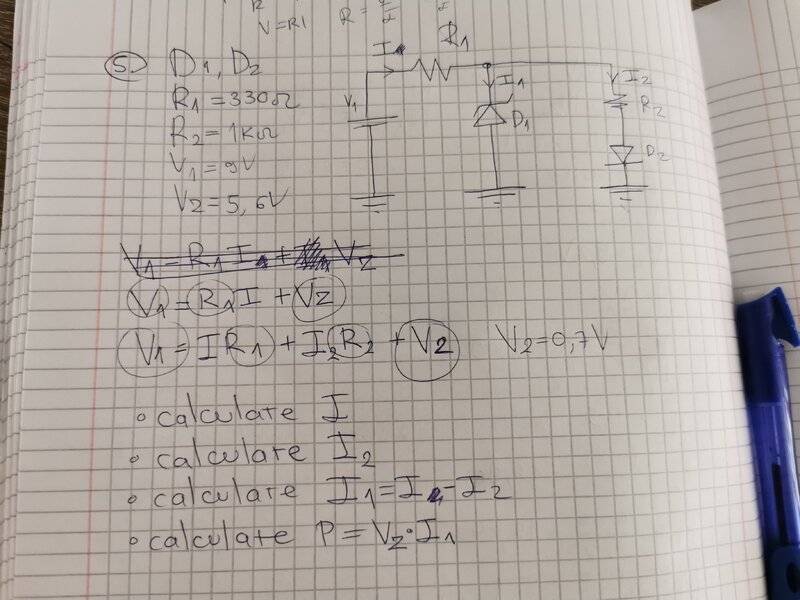 V=RI
R=
I
R1
5. D1, D2
R1=330Ω
R2=1kΩ
V1=9V
VZ=5,6V
V1
I1
D1
I2
R2
D2
V1=R1I+VZ
V1=IR1+I2R2+V2 V2=0,7V
• calculate I
• calculate I2
• calculate I1=I-I2
• calculate P=VZ·I1